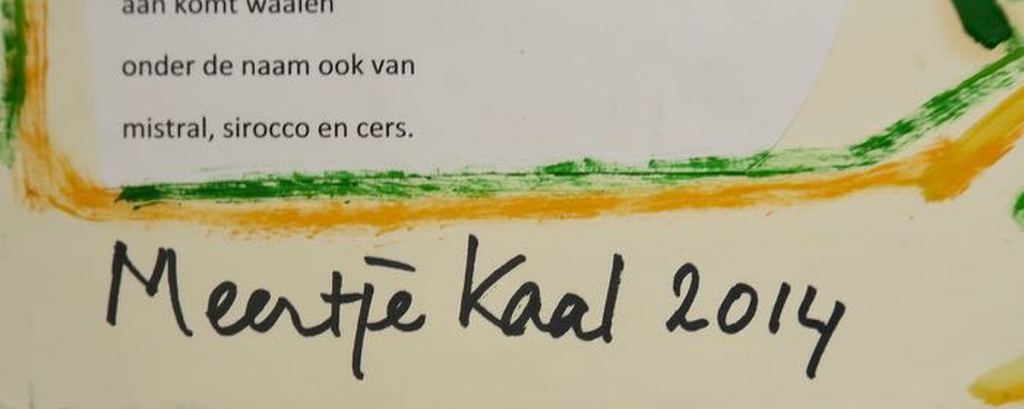 aan komt waaien
onder de naam ook van
mistral, sirocco en cers.
Meertje Kaal 2014